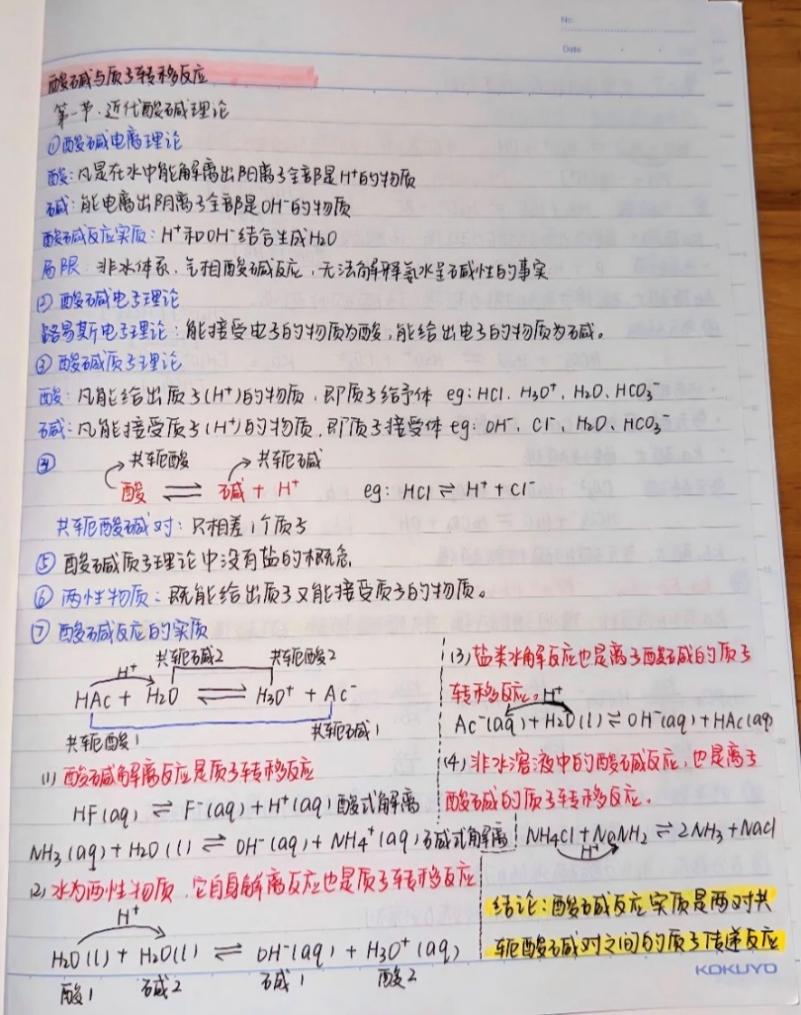 No.
Date
酸碱与质子转移反应
第一节.近代酸碱理论
①酸碱电离理论
酸:凡是在水中能解离出阳离子全部是H⁺的物质
碱:能电离出阴离子全部是OH⁻的物质
酸碱反应实质:H⁺和OH⁻结合生成H₂O
局限:非水体系,气相酸碱反应,无法解释氨水呈碱性的事实
② 酸碱电子理论
路易斯电子理论:能接受电子的物质为酸,能给出电子的物质为碱。
③ 酸碱质子理论
酸:凡能给出质子(H⁺)的物质,即质子给予体 eg:HCl、H₃O⁺、H₂O、HCO₃⁻
碱:凡能接受质子(H⁺)的物质,即质子接受体 eg:OH⁻、Cl⁻、H₂O、HCO₃⁻
④ 共轭酸 共轭碱
酸 ⇌ 碱 + H⁺ eg:HCl ⇌ H⁺ + Cl⁻
共轭酸碱对:只相差1个质子
⑤ 酸碱质子理论中没有盐的概念,
⑥ 两性物质:既能给出质子又能接受质子的物质。
⑦ 酸碱反应的实质
H⁺ 共轭碱2 共轭酸2
HAc + H₂O ⇌ H₃O⁺ + Ac⁻
共轭酸1 共轭碱1
(1) 酸碱解离反应是质子转移反应
HF(aq) ⇌ F⁻(aq) + H⁺(aq) 酸式解离
NH₃(aq) + H₂O(l) ⇌ OH⁻(aq) + NH₄⁺(aq) 碱式解离
(2) 水为两性物质,它自身解离反应也是质子转移反应
H⁺
H₂O(l) + H₂O(l) ⇌ OH⁻(aq) + H₃O⁺(aq)
酸1 碱2 碱1 酸2
(3) 盐类水解反应也是离子酸碱的质子
转移反应。H⁺
Ac⁻(aq) + H₂O(l) ⇌ OH⁻(aq) + HAc(aq)
(4) 非水溶液中的酸碱反应,也是离子
酸碱的质子转移反应。
NH₄Cl + NaNH₂ ⇌ 2NH₃ + NaCl
H⁺
结论:酸碱反应实质是两对共
轭酸碱对之间的质子传递反应
KOKUYO